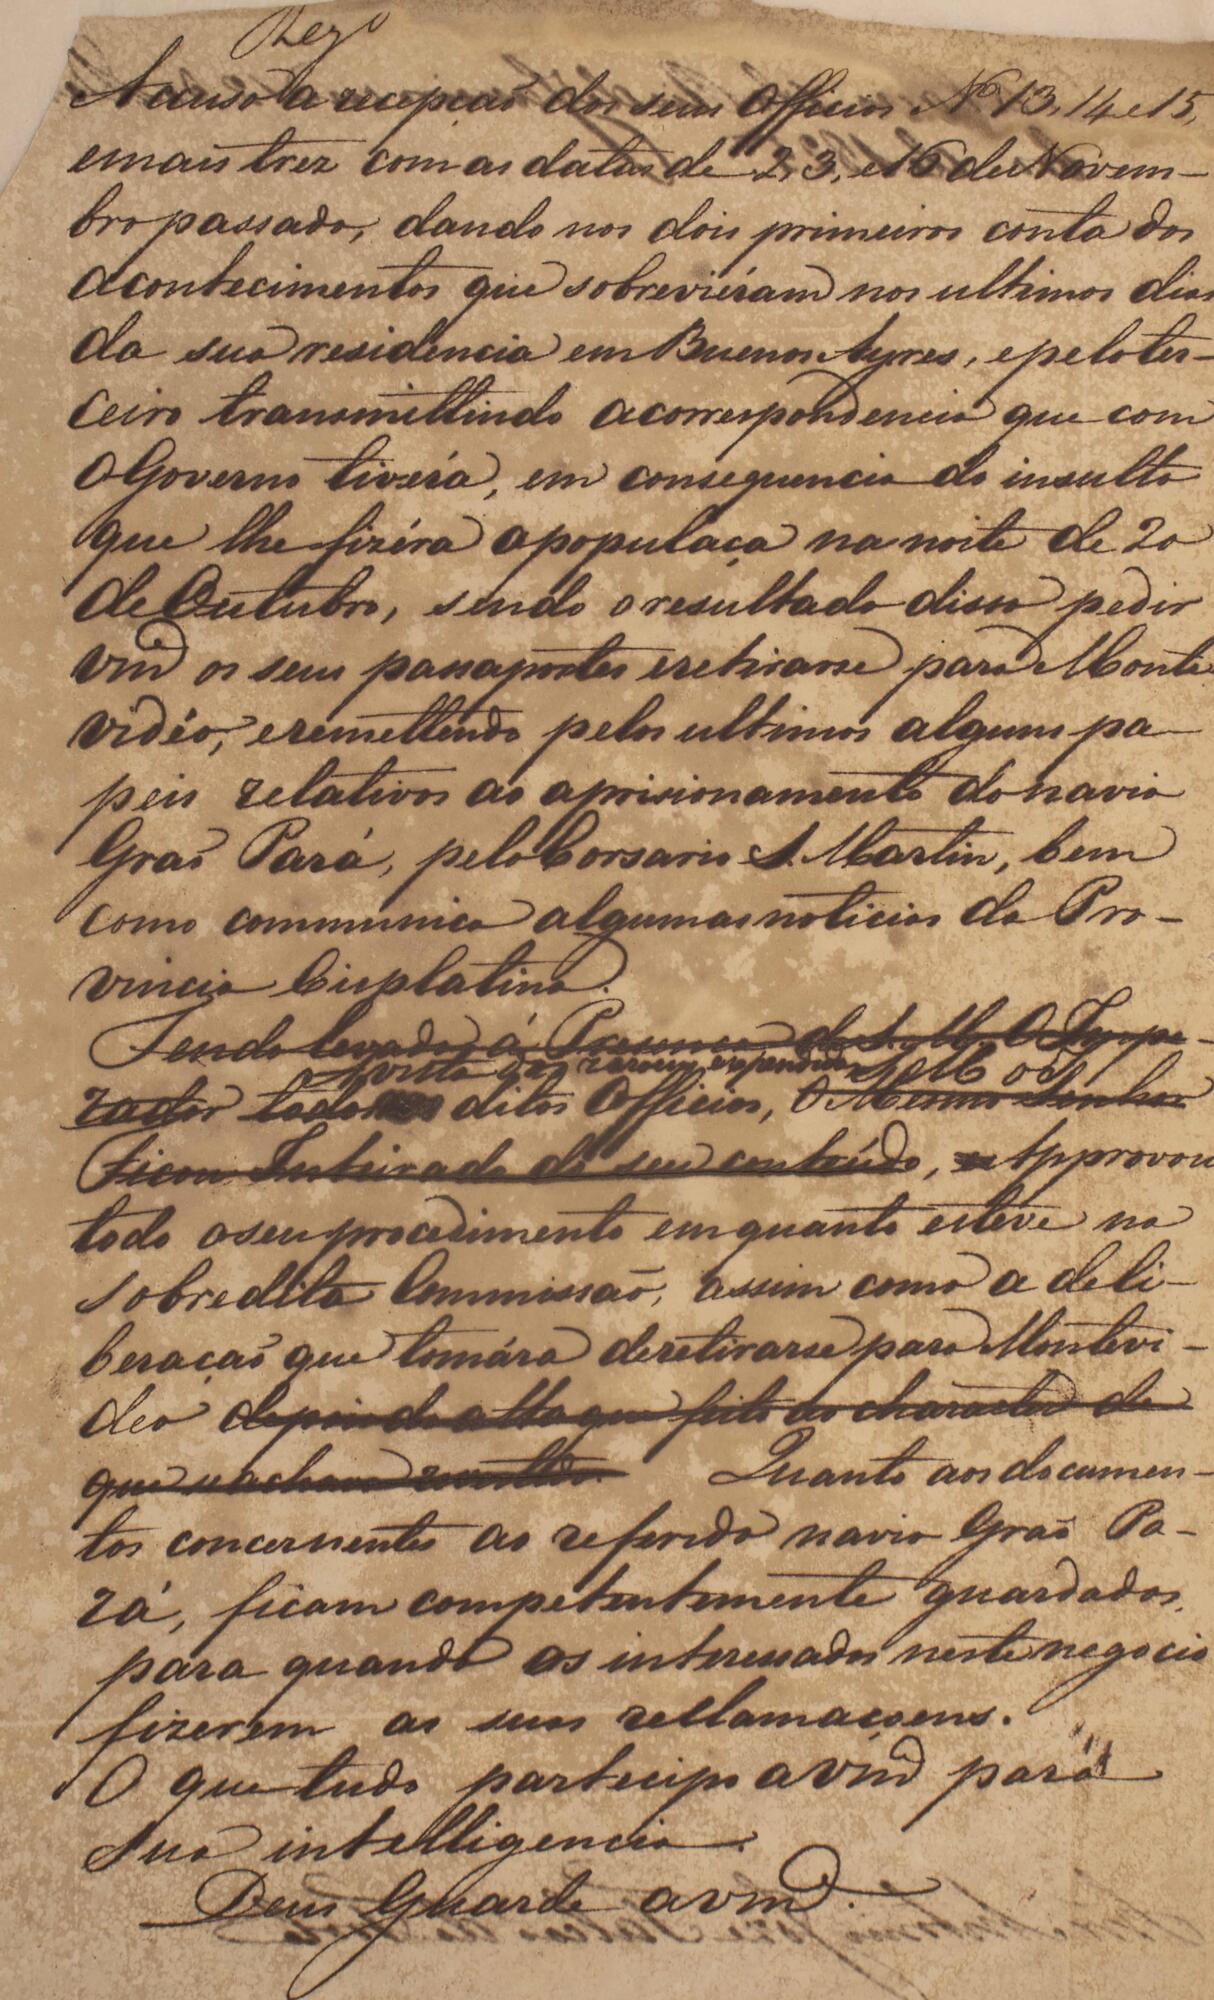 Reg.º
Accuso a recepçaõ dos seus Officios Nos 13, 14 e 15,
e mais trez com as datas de 2, 3, e 16 de Novem-
bro passado, dando nos dois primeiros conta dos
acontecimentos que sobreviéram nos ultimos dias
da sua residencia em Buenos Ayres, e pelo ter-
ceiro transmittindo a correspondencia que com
o Governo tivéra, em consequencia do insulto
que lhe fizéra a populaça na noite de 20
de Outubro, sendo o resultado disso pedir
Vmce os seus passaportes e retirarse para Monte
vidéo, e remettendo pelos ultimos alguns pa-
peis relativos ao aprisionamento do navio
Graõ Pará, pelo Corsario S. Martin, bem
como communica algumas noticias da Pro-
vincia Cisplatina.
Sendo levado á Presença de S. M. O Impe-
vista das razoens expendidas S. M. o I.
rador todos ditos Officios, O Mesmo Senhor
Ficou Inteirado do seu contéudo, e Approvou
todo o seu procedimento em quanto esteve na
sobredita Commissaõ, assim como a deli-
beraçaõ que tomára de retirarse para Montevi-
deo depois do attaque feito ao character de
que se achava revestido. Quanto aos documen-
tos concernentes ao referido navio Graõ Pa-
rá, ficam competentemente guardados,
para quando os interessados neste negocio
fizerem as suas reclamaçoens.
O que tudo participo a Vmce para
sua intelligencia.
Deus Guarde a Vmce.